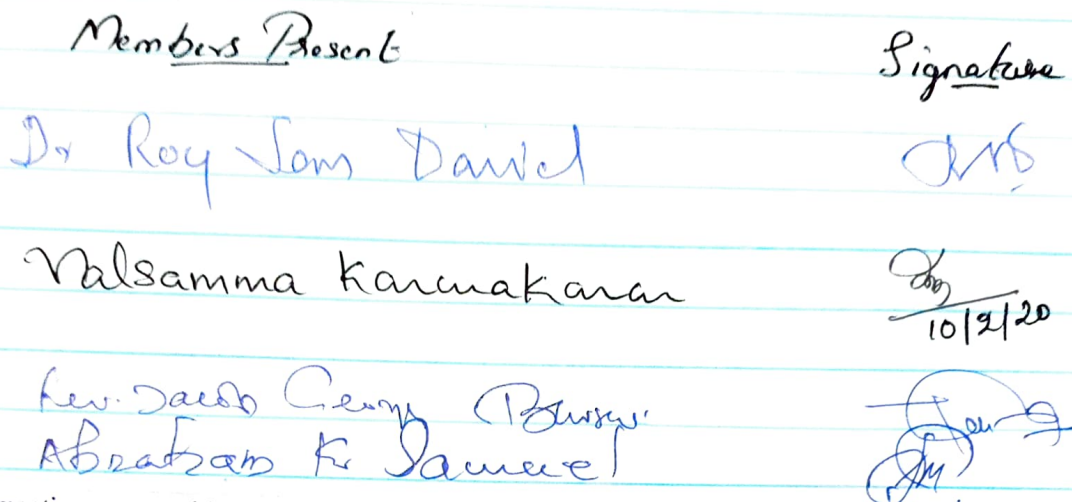 Members Present Signature
Dr Roy Sam David
Valsamma Karunakaran
10/2/20
Rev. Jacob George Bursar
Abraham K Samuel